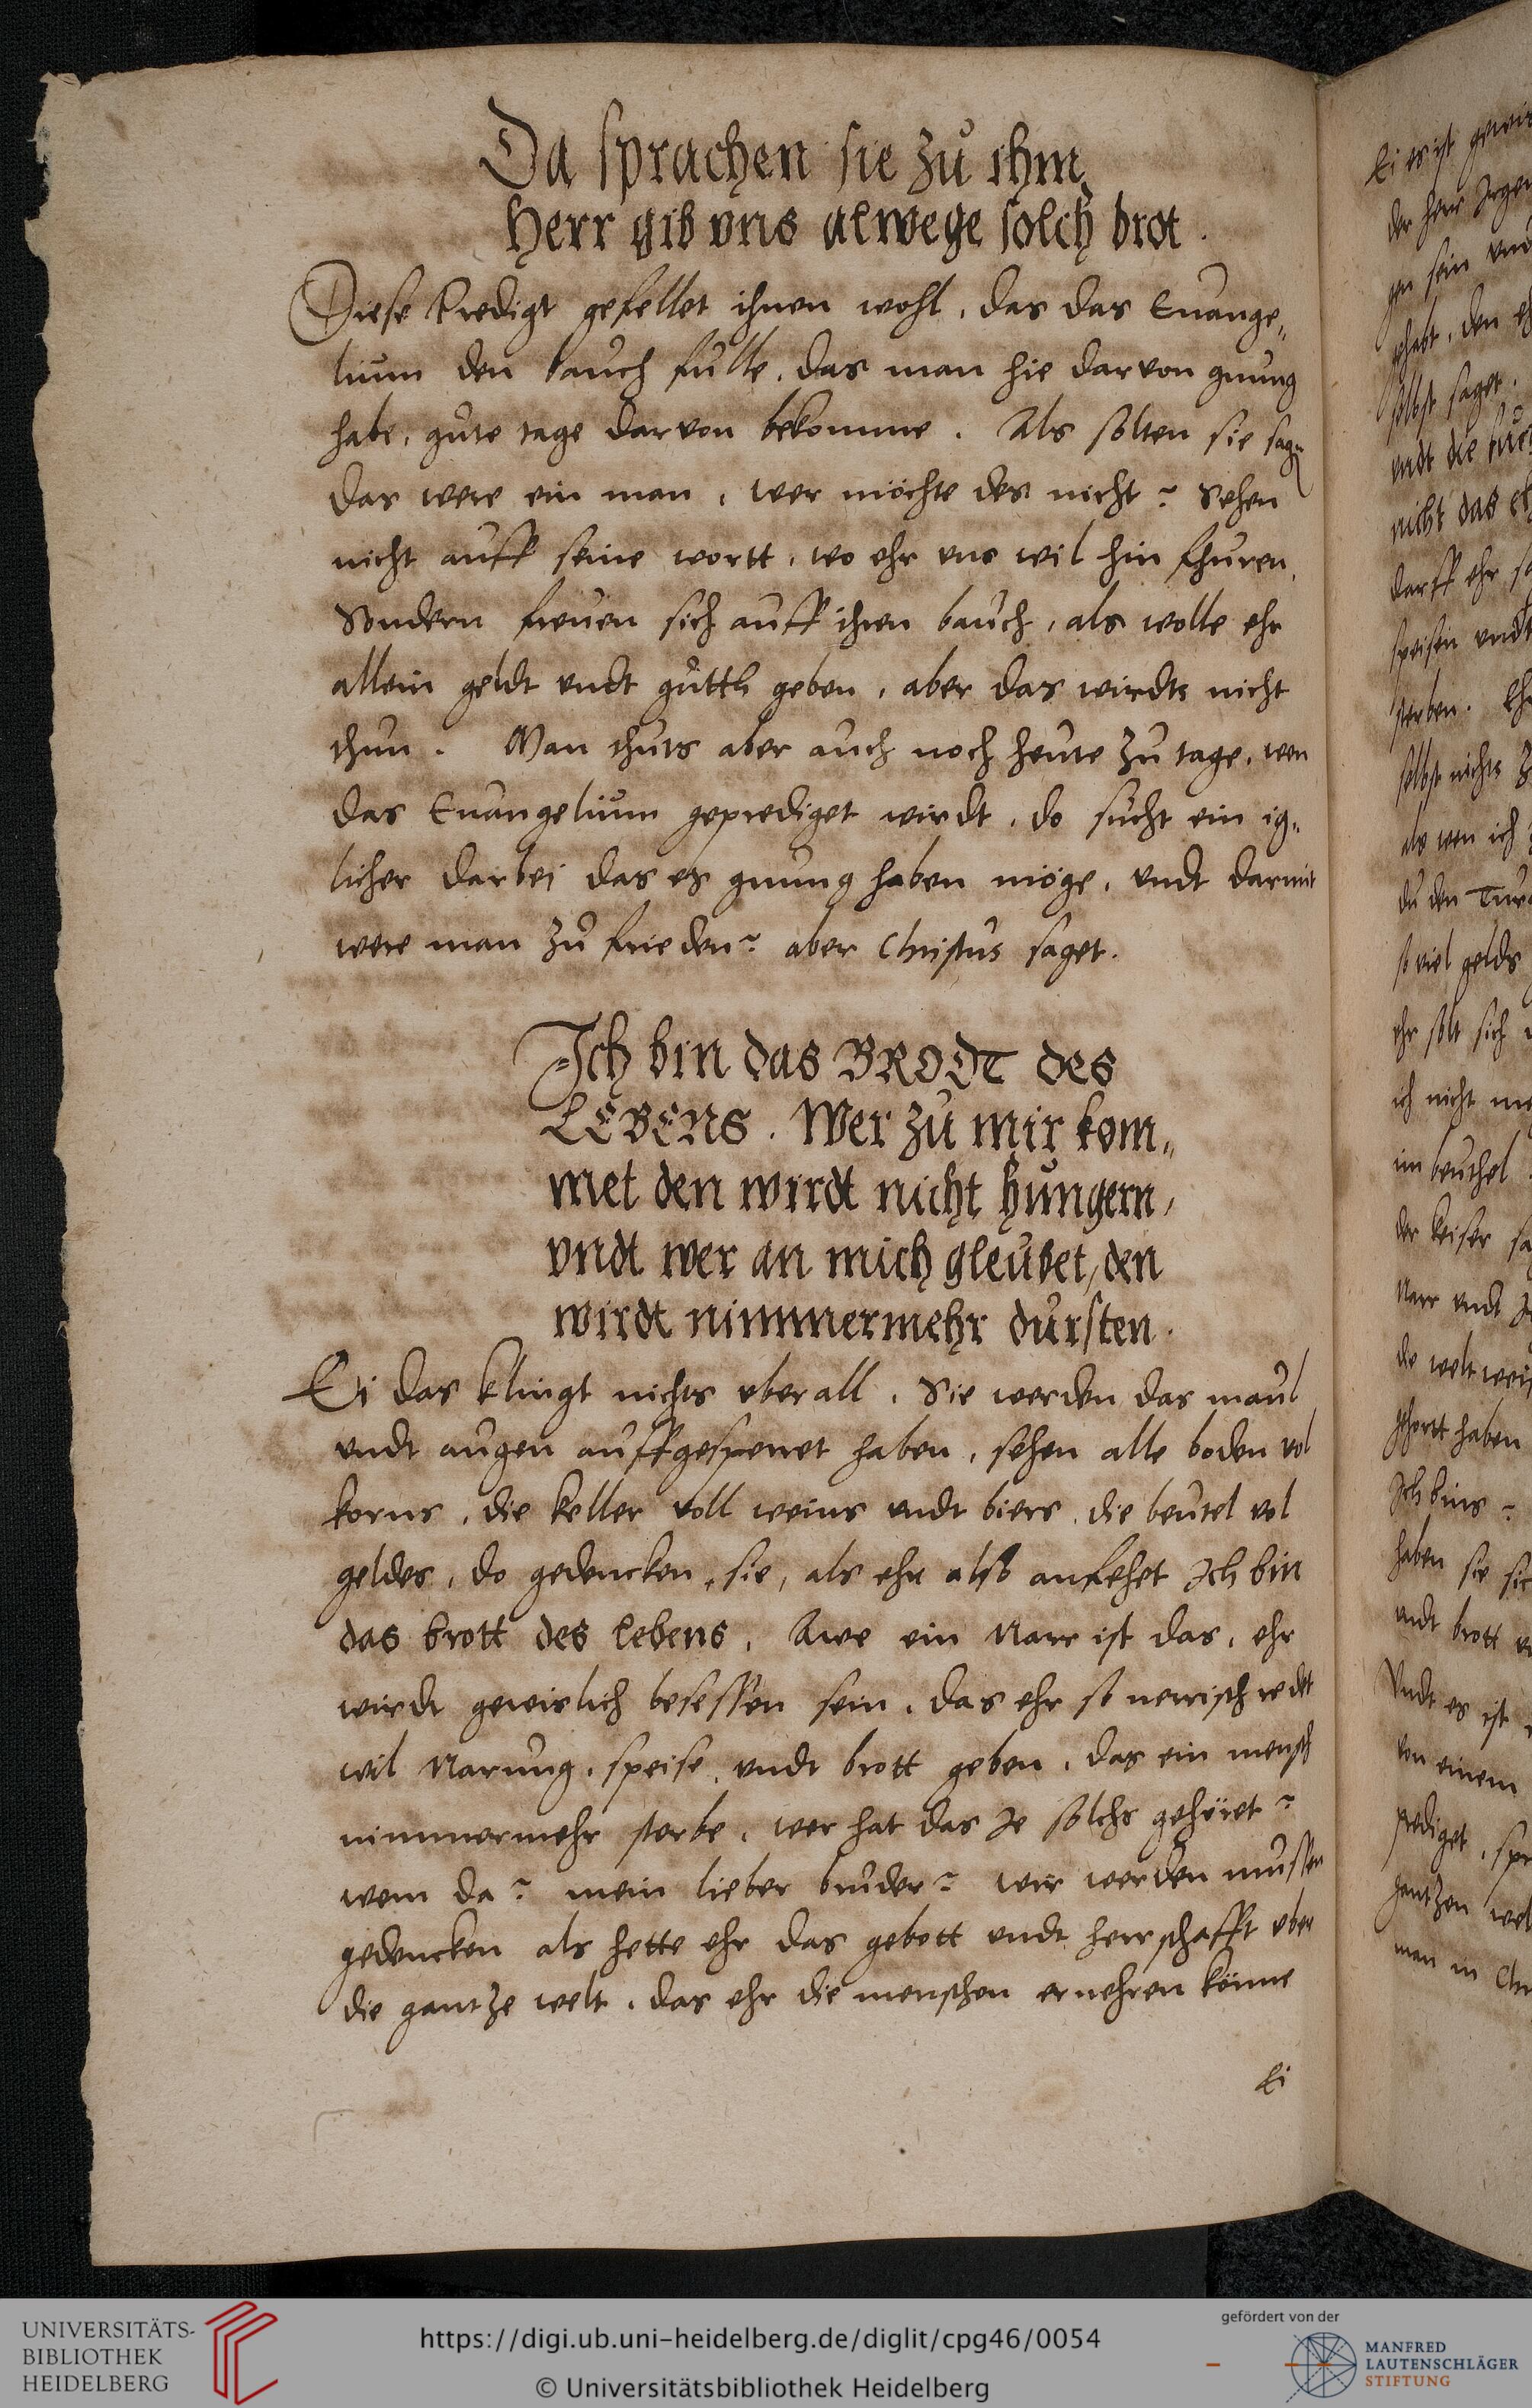 Da sprachen sie zu ihm,
Herr gib vns alwege solch brot.
Diese Predigt gefellet ihnen wohl, das das Euange„
lium den bauch fulle, das man hie darvon gnung
habe, gute tage darvon bekomme. Als solten sie sagn
das were ein man, wer mochte des nicht? Sehen
nicht auff seine wortt, wo ehr vns wil hin fhuren,
Sondern freuen sich auff ihren bauch, als wolle ehr
allein geldt vndt gutth geben, aber das wirdts nicht
thun. Man thuts aber auch noch heute zu tage, wen
das Euangelium geprediget wirdt, do sucht ein ig„
licher darbei das er gnung haben möge, vndt darmit
were man zu frieden? aber Christus saget.
Ich bin das BRODT des
LEBENS. Wer zu mir kom„
met den wirdt nicht hungern,
vndt wer an mich gleubet, den
wirdt nimmermehr dursten.
Ei das klingt nichts vberall. Sie werden das maul
vndt augen auffgesperret haben, sehen alle boden vol
korns, die keller voll weins vndt biers, die beutel vol
geldes, do gedencken sie, als ehr also anfehet Ich bin
das brott des lebens. Awe ein Narr ist das, ehr
wirdt gewislich besessen sein, das ehr so nerrisch redet
wil Narung, speise, vndt brott geben, das ein mensch
nimmermehr sterbe, wer hat das Je solchs gehöret?
wem da? mein lieber bruder? wir werden mussen
gedencken als hette ehr das gebott vndt herrschafft vber
die gantze welt, das ehr die menschen ernehren könne
Ei
Ei es ist
der herr
gen sein vnd
gehabt, den
selbst saget.
vndt die
nicht das
darff ehr
speisen vndt
sterben.
selbst nichts
als wen ich
du den
so viel gelds
ehr solt sich
ich nicht
im beuthel
der keiser
Narr vndt
die welt
gehortt haben
Ich bins?
haben sie
vndt brott
Vndt es ist
von einem
prediget,
gantzen
man in
UNIVERSITÄTS-
BIBLIOTHEK
HEIDELBERG
https://digi.ub.uni-heidelberg.de/diglit/cpg46/0054
© Universitätsbibliothek Heidelberg
gefördert von der
MANFRED
LAUTENSCHLÄGER
STIFTUNG